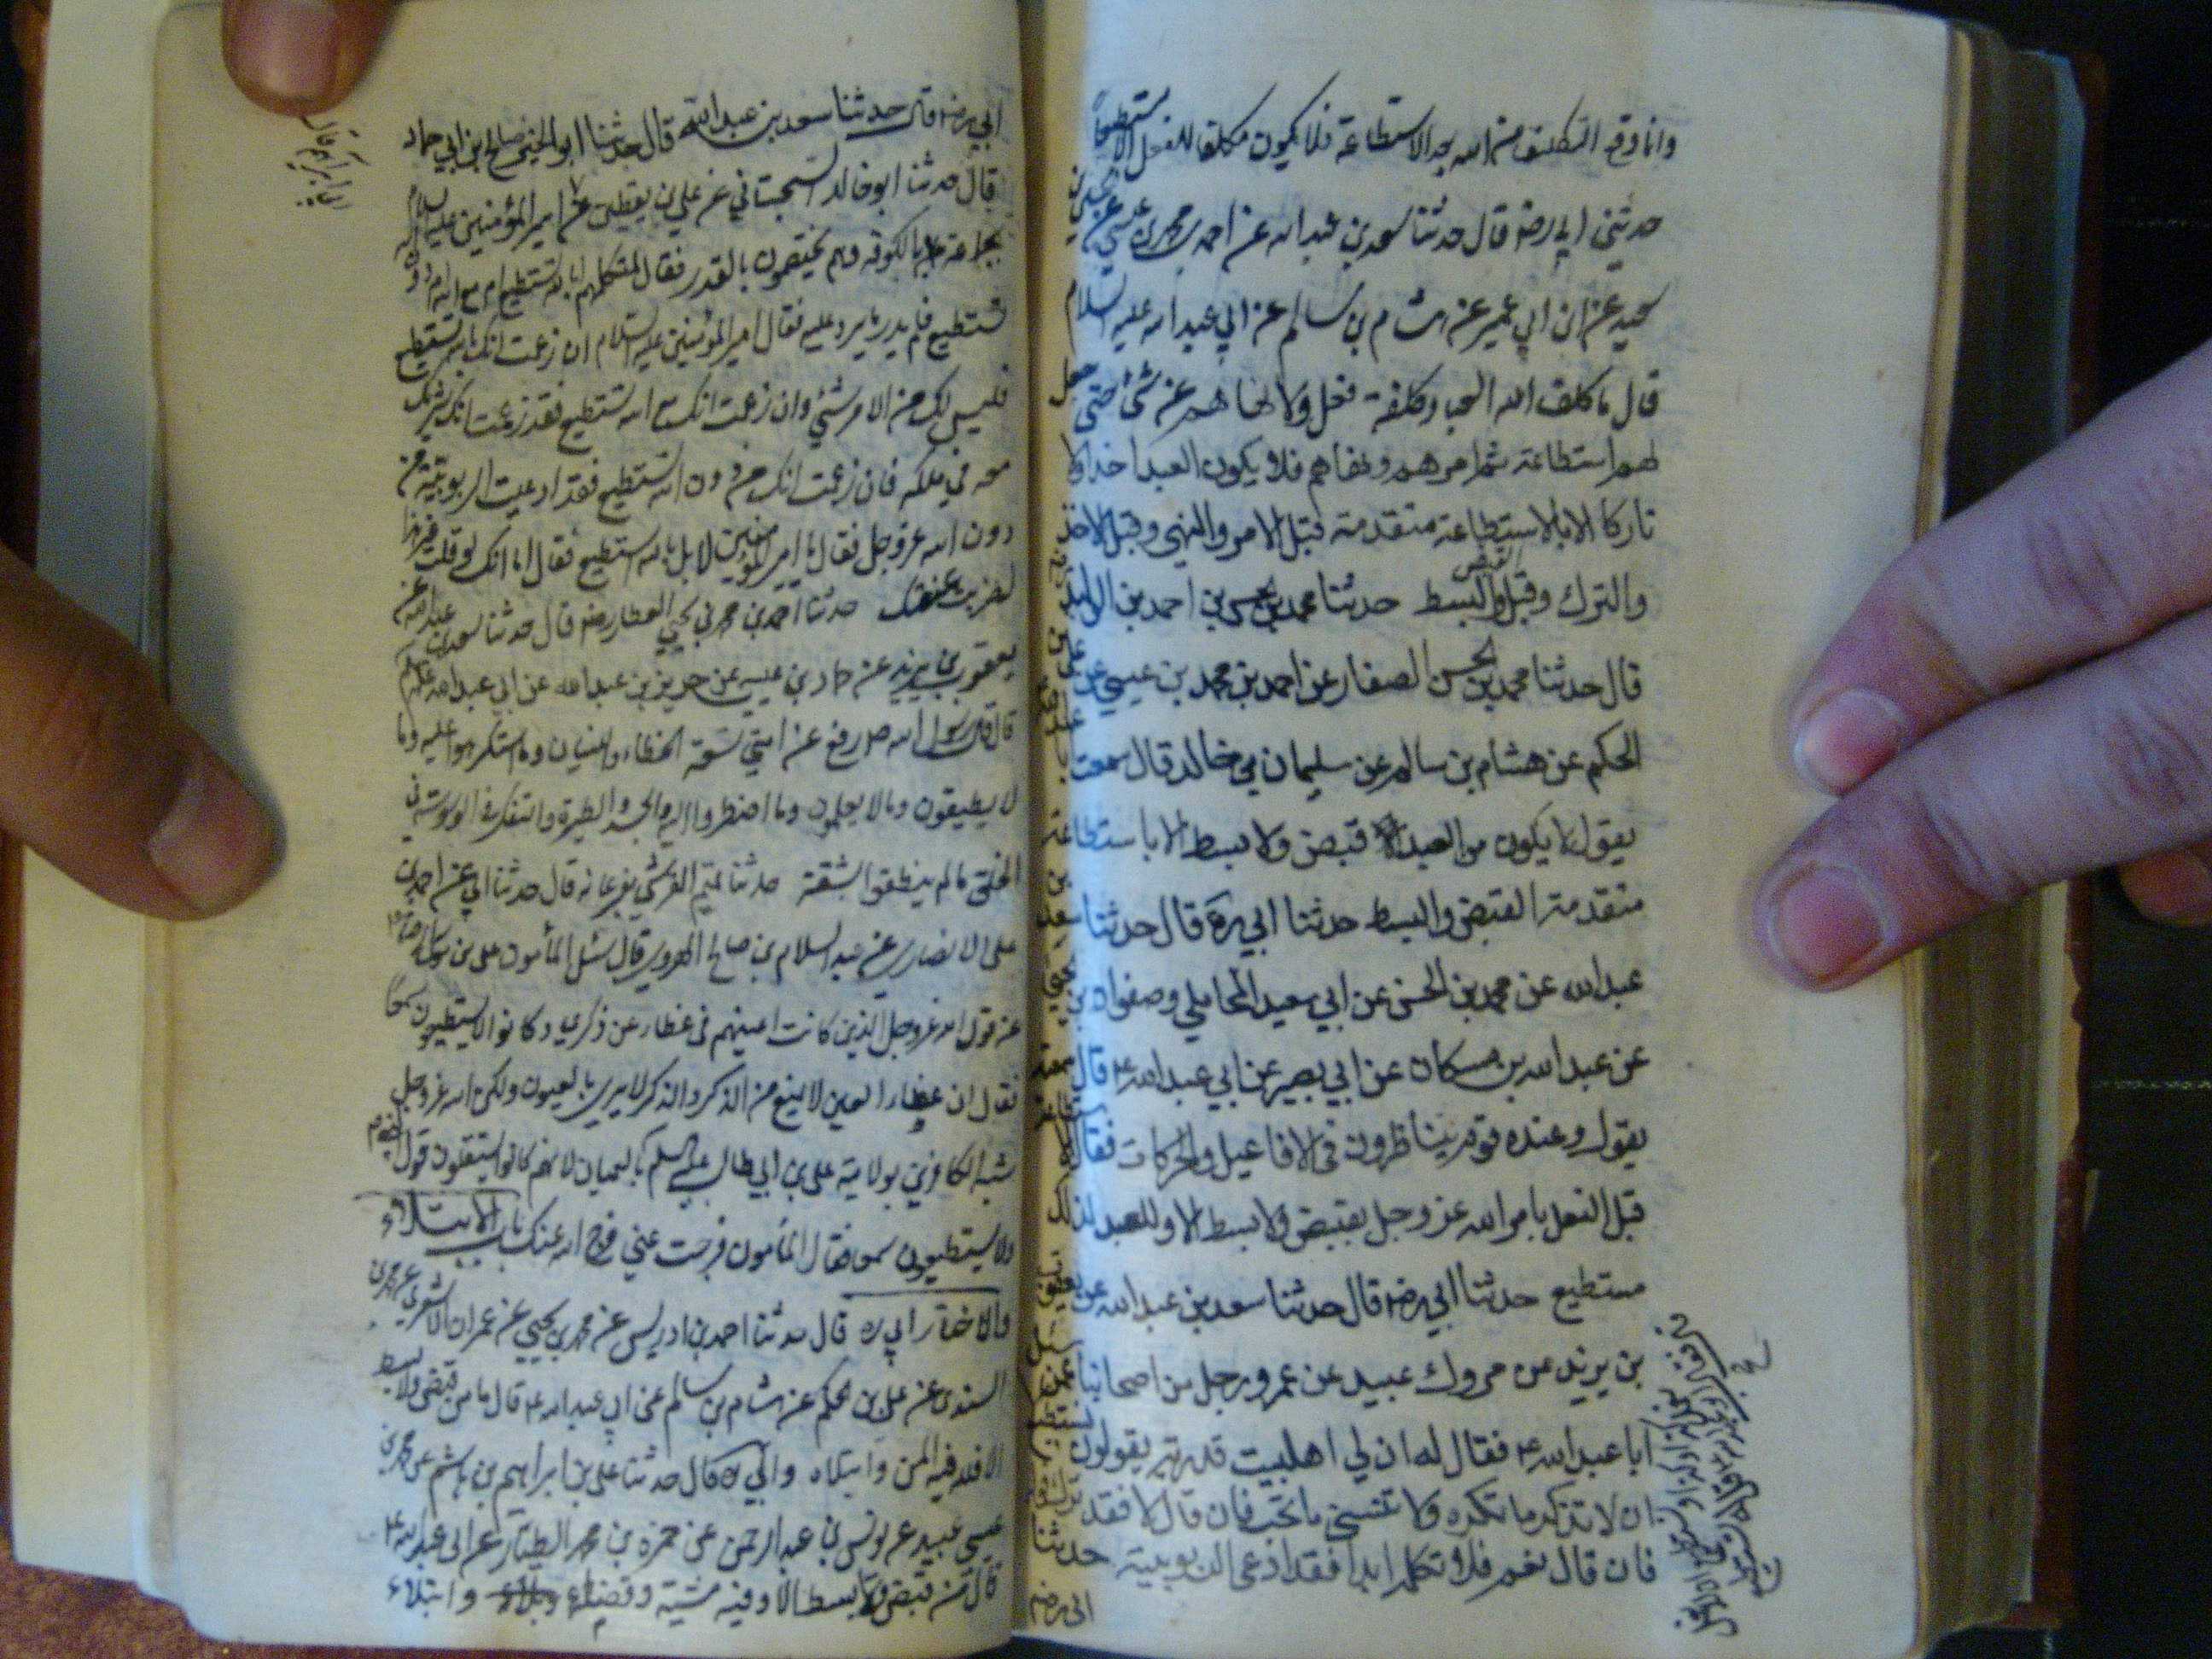 وانما وقع التكليف من الله بعد الاستطاعة فلا يكون مكلفا للفعل الا مستطيعا
حدثني ابي رضه قال حدثنا سعد بن عبد الله عن احمد بن محمد بن عيسى عن علي بن
عن ابن ابي عمير عن هشام بن سالم عن ابي عبد الله عليه السلام
قال ما كلف الله العباد كلفة فعل ولا نهاهم عن شئ حتى جعل
لهم استطاعة ثم امرهم ونهاهم فلا يكون العبد اخذا ولا
تاركا الا بالاستطاعة متقدمة قبل الامر والنهي وقبل الاخذ
والترك وقبل القبض والبسط حدثنا محمد بن الحسن بن احمد بن الوليد
قال حدثنا محمد بن الحسن الصفار عن احمد بن محمد بن عيسى عن علي بن
الحكم عن هشام بن سالم عن سليمان بن خالد قال سمعت
يقول لا يكون من العبد قبض ولا بسط الا باستطاعة
متقدمة القبض والبسط حدثنا ابي ره قال حدثنا سعد بن
عبد الله عن محمد بن الحسن عن ابي سعيد المحاملي وصفوان بن يحيى
عن عبد الله بن مسكان عن ابي بصير عن ابي عبد الله ع قال سمعته
يقول وعنده قوم يتناظرون في الافاعيل والحركات فقال
قبل الفعل يامر الله عز وجل بقبض ولا بسط الا وللعبد لذلك
مستطيع حدثنا ابي رضه قال حدثنا سعد بن عبد الله عن يعقوب
بن يزيد عن مروك عبيد عن عمرو رجل من اصحابنا عمن
ابا عبد الله ع فقال له ان لي اهلبيت قدرية يقولون
ان لا تذكر ما تكره ولا تنسى ما تحب فان قال لا فقد
فان قال نعم فلا تكلمه ابدا فقد ادعى الربوبية حدثنا
ابي رضه
ابي رضه قال حدثنا سعد بن عبد الله قال حدثنا ابو الخير صالح بن ابي حماد
قال حدثنا ابو خالد السجستاني عن علي بن يقطين عن امير المؤمنين عليه السلام
بجماعة بالكوفة وهم يختصمون بالقدر فقال لمتكلمهم ابالله تستطيع ام مع الله ام دون الله
تستطيع فلم يدر ما يرد عليه فقال امير المؤمنين عليه السلام ان زعمت انك بالله تستطيع
فليس لك من الامر شئ وان زعمت انك مع الله تستطيع فقد زعمت انك شريك
معه في ملكه فان زعمت انك من دون الله تستطيع فقد ادعيت الربوبية من
دون الله عز وجل فقال يا امير المؤمنين لا بل بالله استطيع فقال اما انك لو قلت غير هذا
لضربت عنقك حدثنا احمد بن محمد بن يحيى العطار رضه قال حدثنا سعد بن عبد الله عن
يعقوب بن يزيد عن حماد بن عيسى عن حريز بن عبد الله عن ابي عبد الله عليه السلام
قال قال رسول الله ص رفع عن امتي تسعة الخطاء والنسيان وما استكرهوا عليه وما
لا يطيقون وما لا يعلمون وما اضطروا اليه والحسد والطيرة والتفكر في الوسوسة في
الخلق ما لم ينطقوا بشفة حدثنا تميم القرشي بفرغانه قال حدثنا ابي عن احمد بن
علي الانصاري عن عبد السلام بن صالح الهروي قال سئل المأمون علي بن موسى الرضا ع
عن قول الله عز وجل الذين كانت اعينهم في غطاء عن ذكري وكانوا لا يستطيعون سمعا
فقال ان غطاء العين لا يمنع من الذكر والذكر لا يرى بالعيون ولكن الله عز وجل
شبه الكافرين بولاية علي بن ابي طالب عليه السلم بالعميان لانهم كانوا يستثقلون قول
ولا يستطيعون سمعا فقال المأمون فرجت عني فرج الله عنك باب الابتلاء
والاختبار ابي ره قال حدثنا احمد بن ادريس عن محمد بن يحيى عن عمران الاشعري عن محمد بن
السندي عن علي بن الحكم عن هشام بن سالم عن ابي عبد الله ع قال ما من قبض ولا بسط
الا فلله فيه المن وابتلاء وابي ره قال حدثنا علي بن ابراهيم بن هاشم عن محمد بن
عيسى عبيد عن يونس بن عبد الرحمن عن حمزة بن محمد الطيار عن ابي عبد الله ع
قال ما من قبض ولا بسط الا وفيه مشية وقضاء وابتلاء